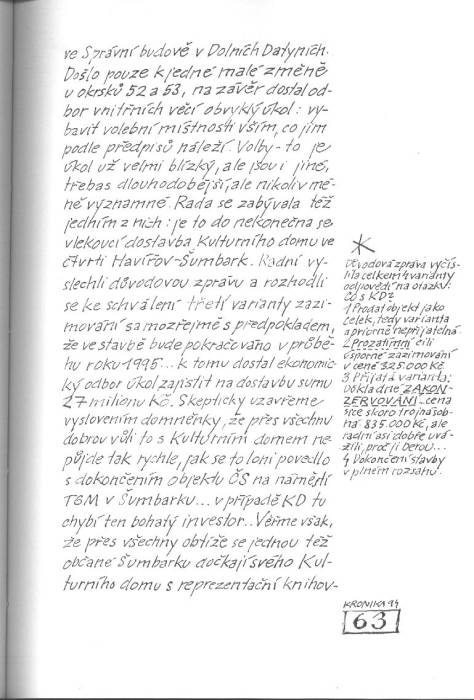 ve Správní budově v Dolních Datyních.
Došlo pouze k jedné malé změně
u okrsků 52 a 53, na závěr dostal od-
bor vnitřních věcí obvyklý úkol: vy-
bavit volební místnosti vším, co jim
podle předpisů náleží. Volby - to je
úkol už velmi blízký, ale jsou i jiné,
třebas dlouhodobější, ale nikoliv mé-
ně významné. Rada se zabývala též
jedním z nich: je to do nekonečna se
vlekoucí dostavba Kulturního domu ve
čtvrti Havířov-Šumbark. Radní vy-
slechli důvodovou zprávu a rozhodli
se ke schválení třetí varianty zazi-
mování samozřejmě s předpokladem,
že ve stavbě bude pokračováno v průbě-
hu roku 1995... k tomu dostal ekonomic-
ký odbor úkol zajistit na dostavbu sumu
27 milionu Kč. Skepticky uzavřeme
vyslovením domněnky, že přes všechnu
dobrou vůli to s Kulturním domem ne-
půjde tak rychle, jak se to loni povedlo
s dokončením objektu ČS na náměstí
TGM v Šumbarku... v případě KD tu
chybí ten bohatý investor. Věřme však,
že přes všechny obtíže se jednou též
občané Šumbarku dočkají svého Kul-
turního domu s reprezentační knihov-
Důvodová zpráva vyčís-
lila celkem 4 varianty
odpovědí na otázku:
Co s KD?
1 Prodat objekt jako
celek, tedy varianta
a priorně nepřijatelná
2 Prozatímní čili
úsporné zazimování
v ceně 325.000 Kč
3 Přijatá varianta:
Důkladné ZAKON-
ZERVOVÁNÍ... cena
sice skoro trojnásob-
ná 835.000 Kč, ale
radní asi dobře uvá-
žili, proč ji berou...
4 Dokončení stavby
v plném rozsahu.
KRONIKA 94
63